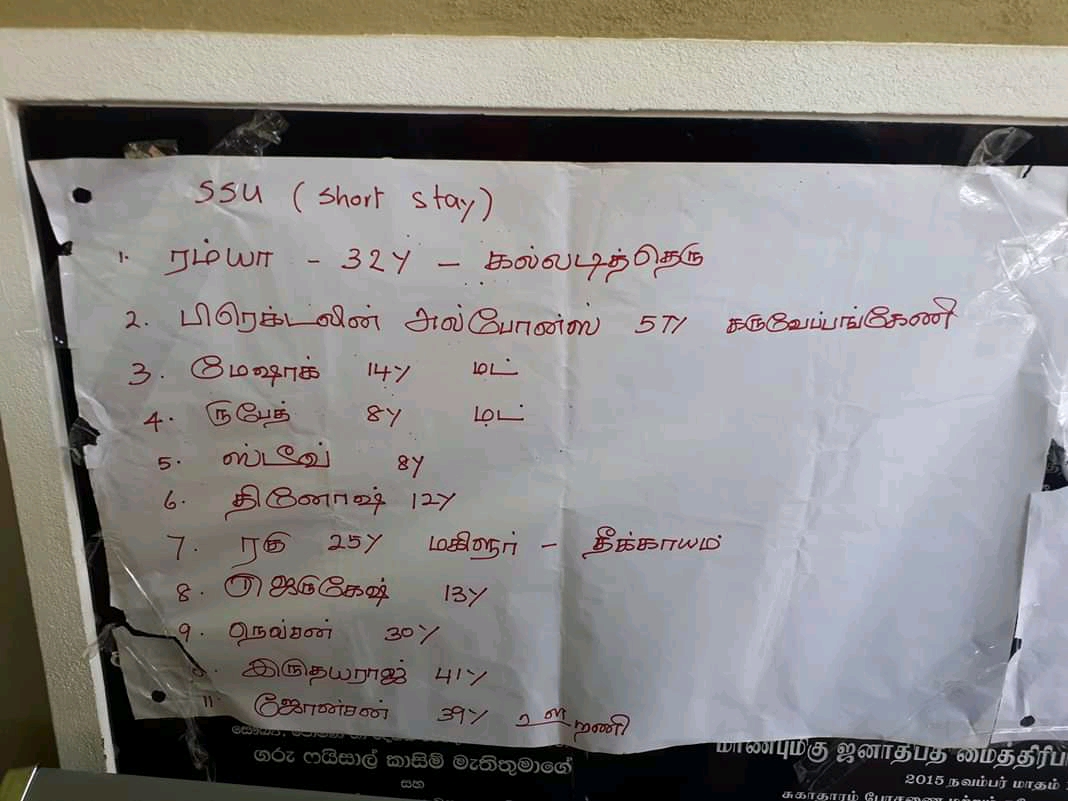 SSU ( Short Stay )
1. ரம்யா - 32Y - கல்லடித்தெரு
2. பிரெக்டலின் அல்போன்ஸ் 57Y கருவேப்பங்கேணி
3. மேஷாக் 14Y மட்
4. ரூபேத் 8Y மட்
5. ஸ்டீவ் 8Y
6. தினோஷ் 12Y
7. ரகு 25Y மகிளூர் - தீக்காயம்
8. 13Y
9. நெல்சன் 30Y
இருதயராஜ் 41Y
11. ஜோன்சன் 39Y ஊறணி
ගරු ෆයිසාල් කාසිම් මැතිතුමාගේ
සහ
மாண்புமிகு ஜனாதிபதி மைத்திரிப
2015 நவம்பர் மாதம்
சுகாதாரம் போசணை மற்றும்